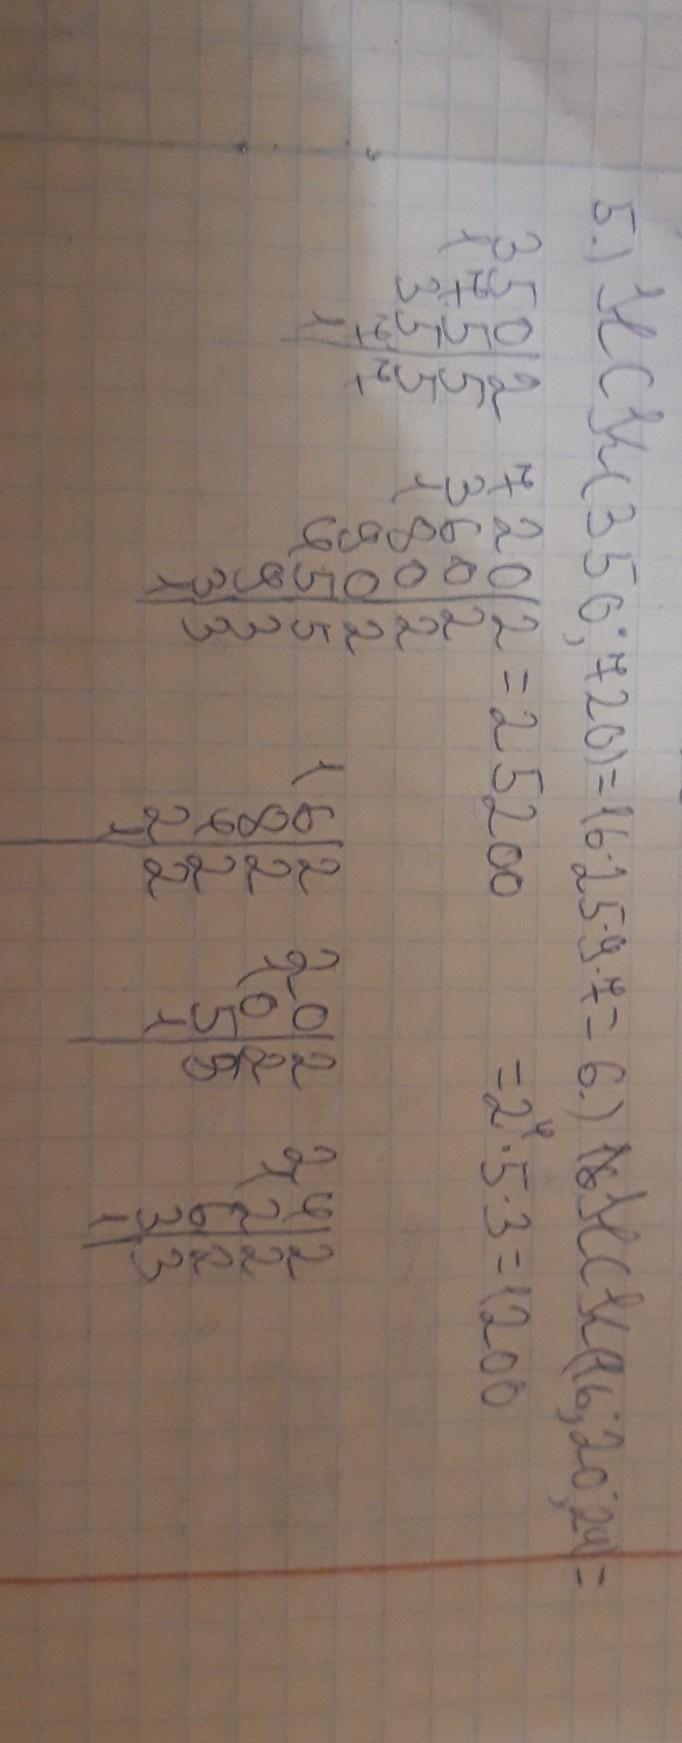 5.) НСК(350; 720) = 16·25·9·7 = 6.) НСК(16; 20; 24) =
350|2 720|2 = 25200 = 2⁴·5·3 = 1200
175|5 360|2
35|5 180|2
7|7 90|2 16|2 20|2 24|2
1 45|5 8|2 10|2 12|2
9|3 4|2 5|5 6|2
3|3 2|2 1 3|3
1 1 1